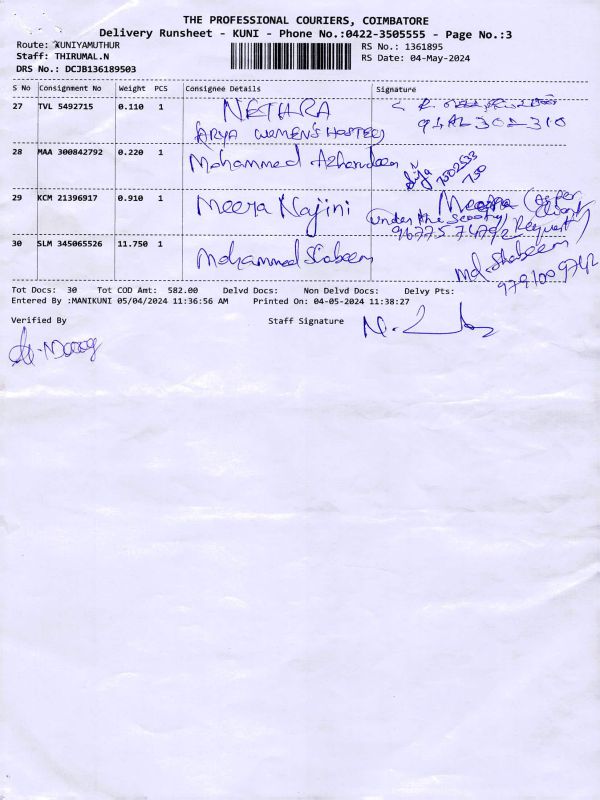 THE PROFESSIONAL COURIERS, COIMBATORE
Delivery Runsheet - KUNI - Phone No.:0422-3505555 - Page No.:3
Route: KUNIYAMUTHUR
Staff: THIRUMAL.N
DRS No.: DCJB136189503
RS No.: 1361895
RS Date: 04-May-2024
S No Consignment No Weight PCS Consignee Details Signature
27 TVL 5492715 0.110 1 NETHRA
ARYA WOMEN'S HOSTEL
28 MAA 300842792 0.220 1 Mohammed Azharudeen
29 KCM 21396917 0.910 1 Meera Najini Meera (As per
(under the scooty) client
9677574792 Request)
30 SLM 345065526 11.750 1 Mohammed Shabeem Md.Shabeem
9791009742
Tot Docs: 30 Tot COD Amt: 582.00 Delvd Docs: Non Delvd Docs: Delvy Pts:
Entered By :MANIKUNI 05/04/2024 11:36:56 AM Printed On: 04-05-2024 11:38:27
Verified By Staff Signature